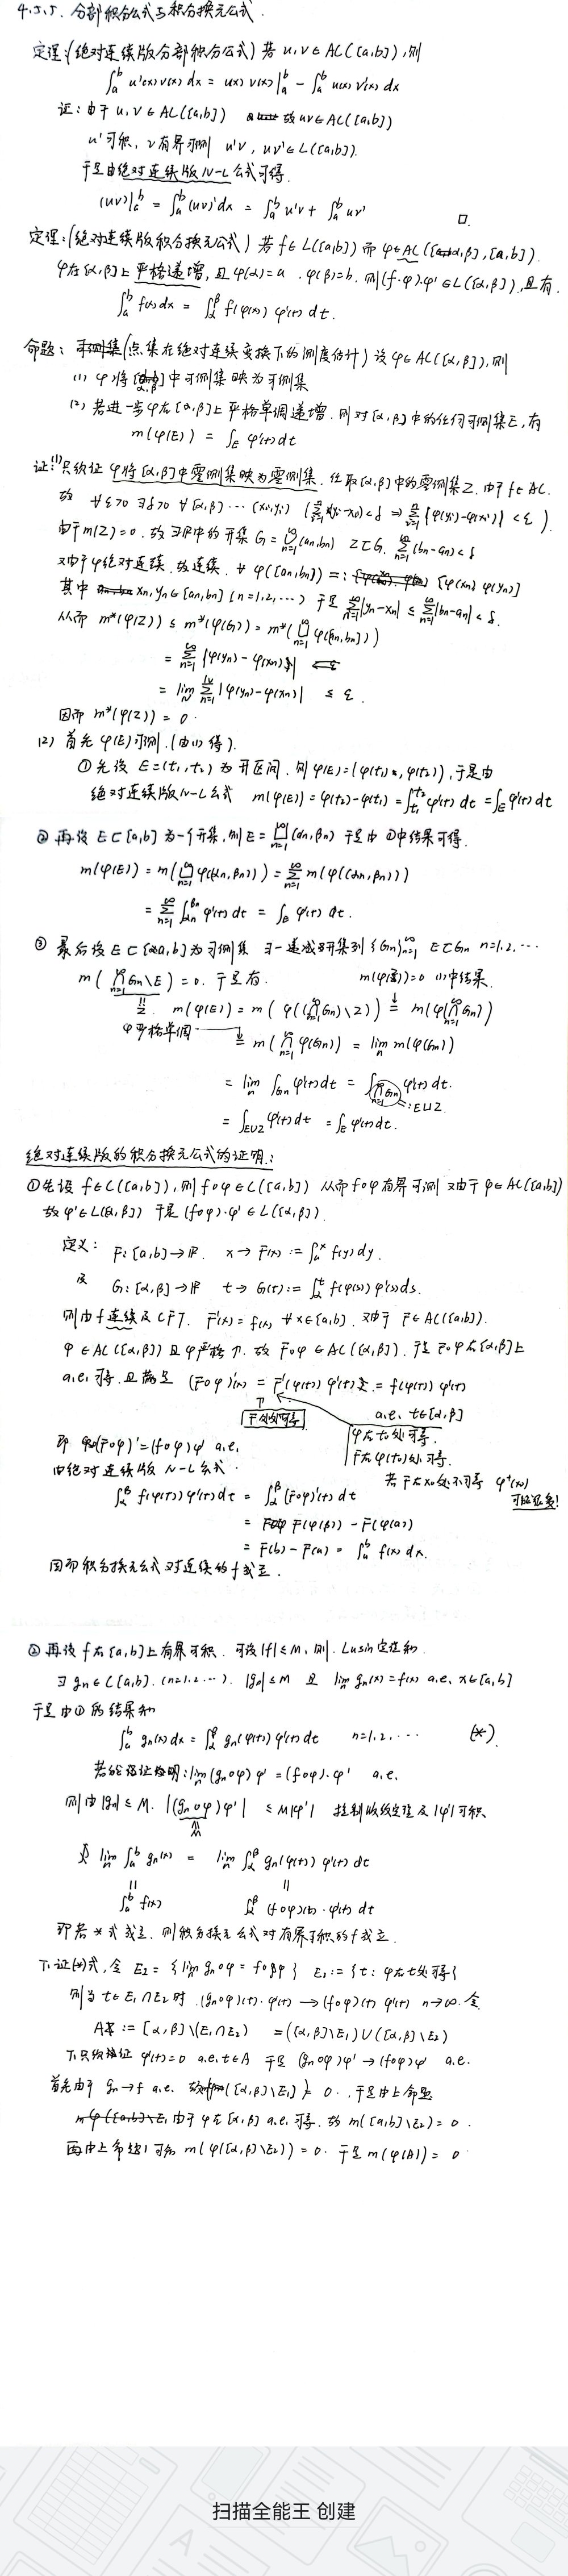 4.5.5. 分部积分公式与积分换元公式
定理:(绝对连续版分部积分公式) 若 u,v∈AC([a,b]),则
∫_a^b u'(x) v(x) dx = u(x) v(x)|_a^b - ∫_a^b u(x) v'(x) dx
证:由于 u,v∈AC([a,b]) 故 uv∈AC([a,b])
u'可积, v有界可测 u'v, uv'∈L([a,b]).
于是由绝对连续版 N-L 公式可得.
(uv)|_a^b = ∫_a^b (uv)'dx = ∫_a^b u'v + ∫_a^b uv' □.
定理:(绝对连续版积分换元公式) 若 f∈L([a,b]) 而 φ∈AC([α,β],[a,b]).
φ在[α,β]上严格递增,且φ(α)=a φ(β)=b. 则(f∘φ)·φ'∈L([α,β]),且有.
∫_a^b f(x)dx = ∫_α^β f(φ(t)) φ'(t) dt.
命题: (点集在绝对连续变换下的测度估计) 设φ∈AC([α,β]),则
(1) φ将[α,β]中可测集映为可测集
(2) 若进一步φ在[α,β]上严格单调递增. 则对[α,β]中的任何可测集E,有
m(φ(E)) = ∫_E φ'(t)dt
证:(1)只须证 φ将[α,β]中零测集映为零测集. 任取[α,β]中的零测集Z. 由于f∈AC.
故 ∀ε>0 ∃δ>0 ∀[α,β] ··· (xi,yi)
由于m(Z)=0. 故∃R中的开集 G=⋃_{n=1}^∞(an,bn) Z⊂G. Σ_{n=1}^∞(bn-an)<δ
又由于φ绝对连续. 故连续. ∀ φ([an,bn]) =: [φ(xn) φ(yn)]
其中 xn,yn∈[an,bn] (n=1,2,···) 于是 Σ_{n=1}^∞|yn-xn| ≤ Σ_{n=1}^∞|bn-an| < δ.
从而 m*(φ(Z)) ≤ m*(φ(G)) = m*(⋃_{n=1}^∞ φ([an,bn]))
= Σ_{n=1}^∞ |φ(yn)-φ(xn)|
= lim_N Σ_{n=1}^N |φ(yn)-φ(xn)| ≤ ε.
因而 m*(φ(Z)) = 0.
(2) 首先 φ(E)可测. (由(1)得).
①先设 E=(t1,t2) 为开区间. 则 φ(E)=(φ(t1), φ(t2)), 于是由
绝对连续版N-L公式 m(φ(E)) = φ(t2)-φ(t1) = ∫_{t1}^{t2} φ'(t) dt = ∫_E φ'(t)dt
②再设 E⊂[a,b]为一个开集,则E=⋃_{n=1}^∞(αn,βn) 于是由①中结果可得.
m(φ(E)) = m(⋃_{n=1}^∞ φ((αn,βn))) = Σ_{n=1}^∞ m(φ((αn,βn)))
= Σ_{n=1}^∞ ∫_{αn}^{βn} φ'(t) dt = ∫_E φ'(t) dt.
③最后设 E⊂[a,b]为可测集 ∃一递减开集列{Gn}_{n=1}^∞ E⊂Gn n=1,2,···
m(⋂_{n=1}^∞ Gn\E) = 0. 于是有. m(φ(Z))=0 (1)中结果.
Z. m(φ(E)) = m(φ((⋂_{n=1}^∞ Gn)\Z)) = m(φ(⋂_{n=1}^∞ Gn))
φ严格单调 = m(⋂_{n=1}^∞ φ(Gn)) = lim_n m(φ(Gn))
= lim_n ∫_{Gn} φ'(t)dt = ∫_{⋂_{n=1}^∞ Gn} φ'(t) dt.
=:E∪Z.
= ∫_{E∪Z} φ'(t) dt = ∫_E φ'(t)dt.
绝对连续版的积分换元公式的证明:
①先设 f∈C([a,b]), 则 f∘φ∈C([a,b]) 从而 f∘φ有界可测 又由于φ∈AC([a,b])
故 φ'∈L([α,β]) 于是 (f∘φ)·φ'∈L([α,β]).
定义: F:[a,b]→R. x→F(x) := ∫_a^x f(y)dy.
及 G:[α,β]→R t→G(t) := ∫_α^t f(φ(s)) φ'(s)ds.
则由f连续及CFT. F'(x)=f(x) ∀x∈[a,b]. 又由于 F∈AC([a,b]).
φ∈AC([α,β])且φ严格↑. 故 F∘φ∈AC([α,β]). 于是F∘φ在[α,β]上
a.e.可导. 且满足 (F∘φ)'(x) = F'(φ(t)) φ'(t) = f(φ(t)) φ'(t)
F处处可导 a.e. t∈[α,β]
φ在t0处可导.
F在φ(t0)处可导.
即 (F∘φ)'=(f∘φ)φ' a.e.
若F在x0处不可导 φ⁻¹(x0)
可能很多!
由绝对连续版 N-L公式.
∫_α^β f(φ(t)) φ'(t)dt = ∫_α^β (F∘φ)'(t) dt
= F(φ(β)) - F(φ(α))
= F(b)-F(a) = ∫_a^b f(x) dx.
因而积分换元公式对连续的f成立.
②再设 f在[a,b]上有界可积. 可设|f|≤M, 则. Lusin定理知
∃ gn∈C[a,b]. (n=1,2,···). |gn|≤M 且 lim_n gn(x)=f(x) a.e. x∈[a,b]
于是由①的结果知
∫_a^b gn(x) dx = ∫_α^β gn(φ(t)) φ'(t) dt n=1,2,··· (*)
若能证明: lim_n (gn∘φ) φ' = (f∘φ)·φ' a.e.
则由|gn|≤M. |(gn∘φ)φ'| ≤ M|φ'| 控制收敛定理及|φ'|可积.
lim_n ∫_a^b gn(x) = lim_n ∫_α^β gn(φ(t)) φ'(t) dt
∫_a^b f(x) ∫_α^β (f∘φ)(t)·φ'(t) dt
即若*式成立. 则积分换元公式对有界可积的f成立.
下证(*)式, 令 E2 = {lim gn∘φ = f∘φ} E1 := {t: φ在t处可导}
则当 t∈E1∩E2时. (gn∘φ)(t)·φ'(t) → (f∘φ)(t) φ'(t) n→∞. 令
A := [α,β]\(E1∩E2) = ([α,β]\E1)∪([α,β]\E2)
下只须证 φ'(t)=0 a.e. t∈A 于是 (gn∘φ)φ' → (f∘φ)φ' a.e.
首先由于 gn→f a.e. 故 ([α,β]\E1) = 0. 于是由上命题
由于φ在[α,β] a.e.可导. 故 m([a,b]\E2)=0.
再由上命题(1)可知 m(φ([α,β]\E2)) = 0. 于是 m(φ(A)) = 0
扫描全能王 创建